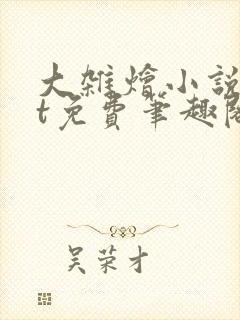 大雑燴小說
t免費筆趣閣
吴荣才